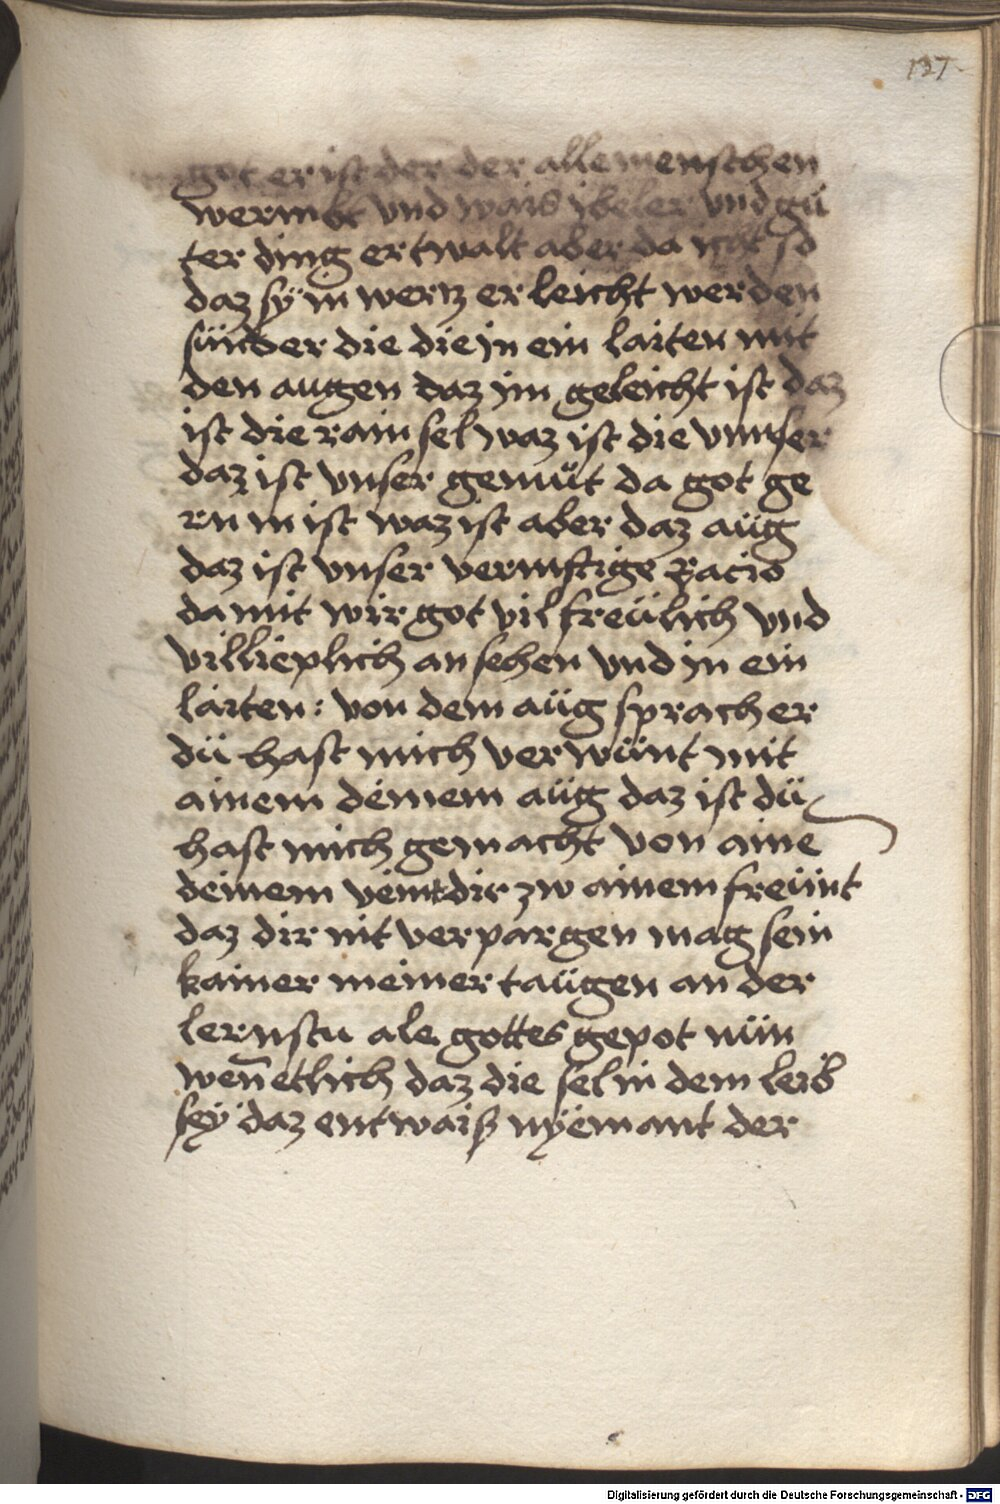 137
got er ist der der alle menschen
wermbt vnd wais ybeler vnd gü
ter ding er twalt aber da nit so
daz sÿ in wertz er leicht werden
sünder die die in ein laiten mit
den augen daz im geleicht ist daz
ist die rain sel waz ist die vnnser
daz ist vnser gemüt da got ge
rn in ist waz ist aber daz aüg
daz ist vnser vernuftige Racio
da mit wir got vil freülich vnd
villieplich an sehen vnd in ein
laiten : von dem aüg sprach er
dü hast mich ver wünt mit
ainem deinem aüg daz ist dü
hast mich gemacht von aine
deinem veint dir zw ainem freünt
daz dir nit verpargen mag sein
kainer meiner taügen an der
lernstu ale gottes gepot nün
wen̄ etlich daz die sel in dem leib
seÿ daz entwaiß nÿemant der
Digitalisierung gefördert durch die Deutsche Forschungsgemeinschaft - DFG